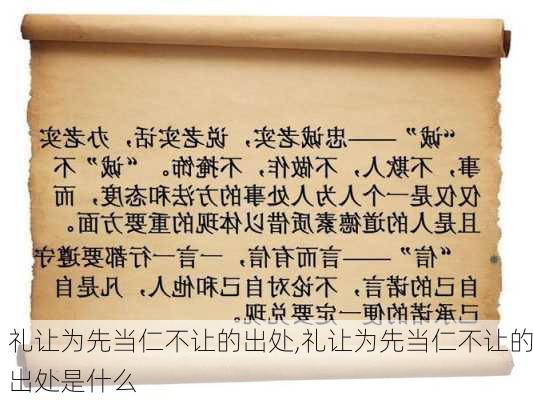 “诚”——忠诚老实，说老实话，办老实
事，不欺人，不做作，不掩饰。“诚”不
仅仅是一个人为人处事的方法和态度，而
且是人的道德素质借以体现的重要方面。
“信”——言而有信，一言一行都要遵守
自己的诺言，不论对自己和他人，凡是自
己承诺的便一定要兑现。
礼让为先当仁不让的出处,礼让为先当仁不让的
出处是什么